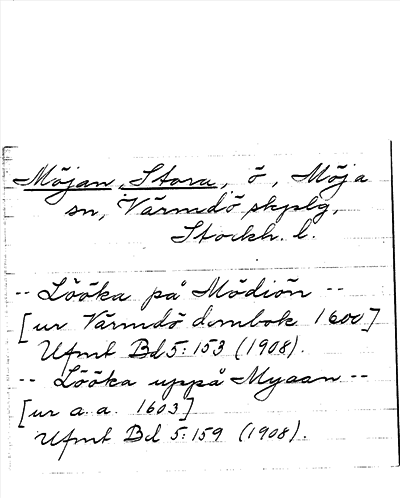 Möjan, Stora, ö, Möja
sn, Värmdö skplg,
Stockh. l.
-- Lööka på Mödiön --
[ur Värmdö dombok 1600]
Ufmt Bd 5: 153 (1908).
-- Lööka uppå Myaan --
[ur a. a. 1603]
Ufmt Bd 5: 159 (1908).